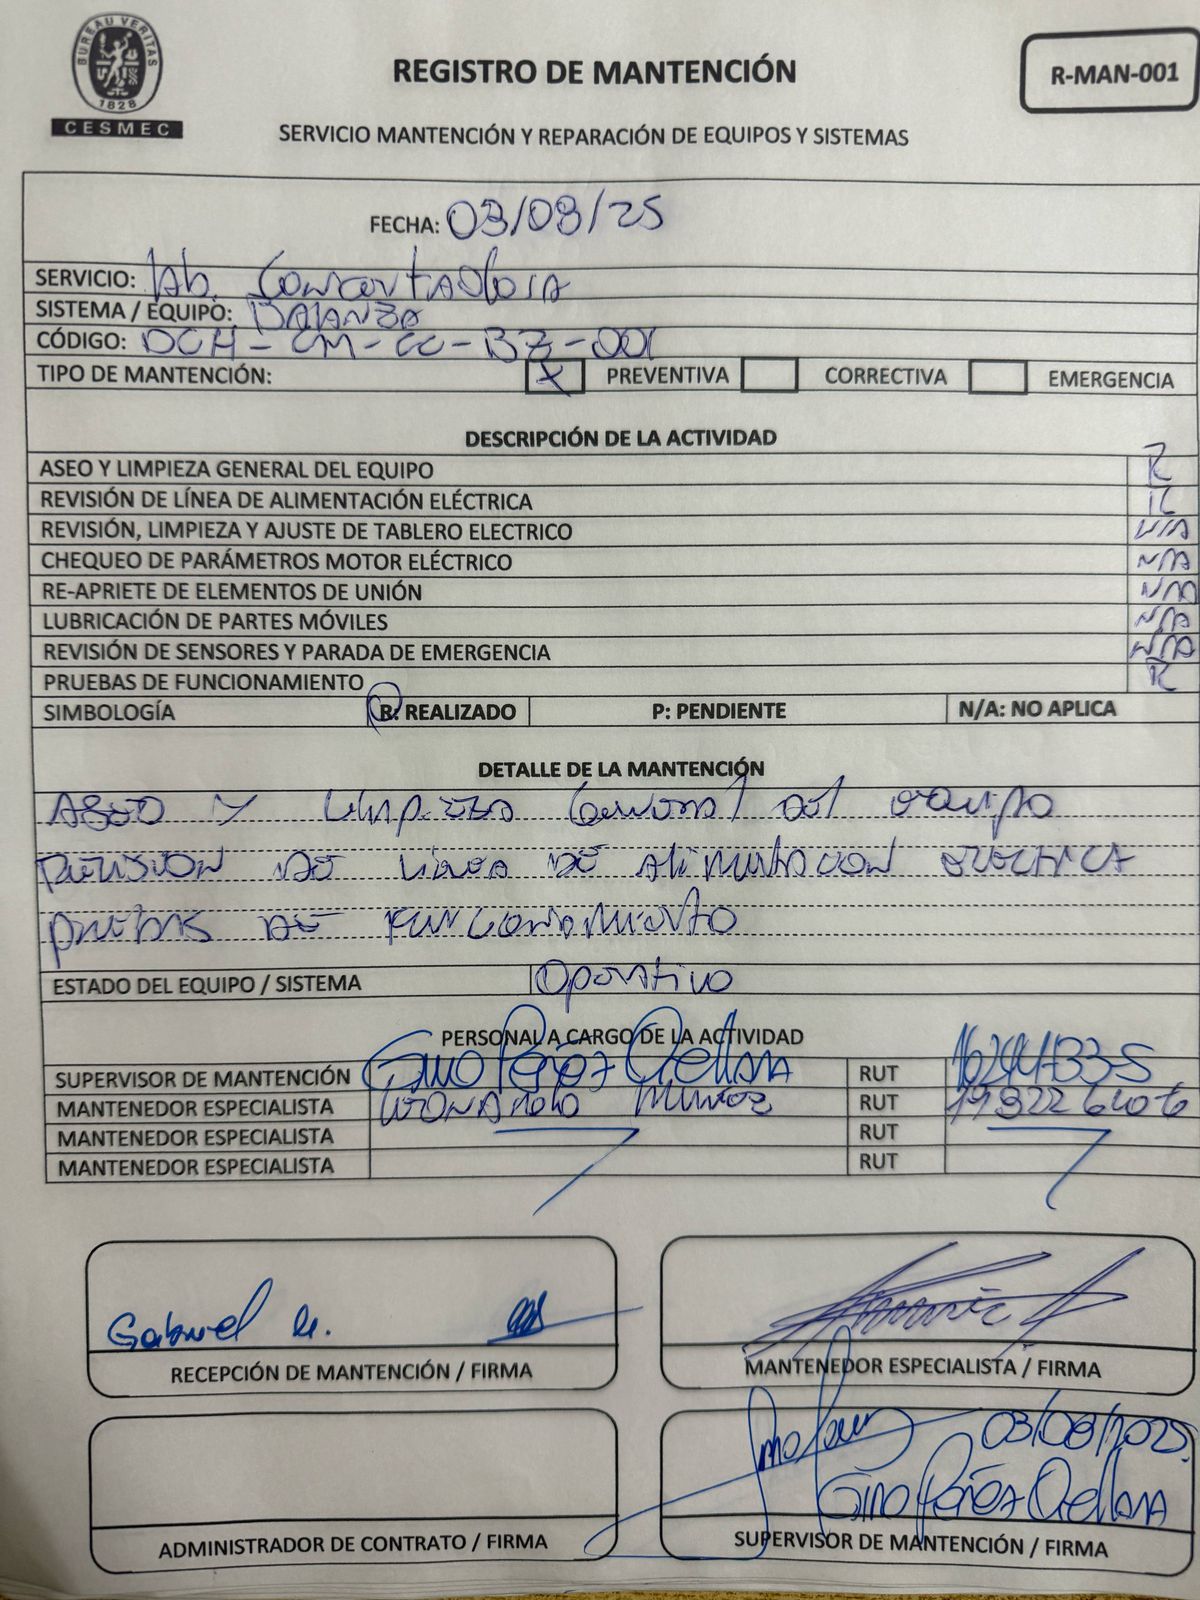 BUREAU VERITAS
1828
CESMEC
REGISTRO DE MANTENCIÓN
R-MAN-001
SERVICIO MANTENCIÓN Y REPARACIÓN DE EQUIPOS Y SISTEMAS
FECHA: 03/08/25
SERVICIO: Lab. Concentradora
SISTEMA / EQUIPO: BALANZA
CÓDIGO: DCH-CM-CC-BZ-001
TIPO DE MANTENCIÓN: X PREVENTIVA CORRECTIVA EMERGENCIA
DESCRIPCIÓN DE LA ACTIVIDAD
ASEO Y LIMPIEZA GENERAL DEL EQUIPO R
REVISIÓN DE LÍNEA DE ALIMENTACIÓN ELÉCTRICA R
REVISIÓN, LIMPIEZA Y AJUSTE DE TABLERO ELECTRICO N/A
CHEQUEO DE PARÁMETROS MOTOR ELÉCTRICO N/A
RE-APRIETE DE ELEMENTOS DE UNIÓN N/A
LUBRICACIÓN DE PARTES MÓVILES N/A
REVISIÓN DE SENSORES Y PARADA DE EMERGENCIA N/A
PRUEBAS DE FUNCIONAMIENTO R
SIMBOLOGÍA R: REALIZADO P: PENDIENTE N/A: NO APLICA
DETALLE DE LA MANTENCIÓN
ASEO Y Limpieza General del equipo
Revision de linea de alimentacion electrica
pruebas de funcionamiento
ESTADO DEL EQUIPO / SISTEMA Operativo
PERSONAL A CARGO DE LA ACTIVIDAD
SUPERVISOR DE MANTENCIÓN Gino Pérez Orellana RUT
MANTENEDOR ESPECIALISTA Muñoz RUT
MANTENEDOR ESPECIALISTA RUT
MANTENEDOR ESPECIALISTA RUT
Gabriel
RECEPCIÓN DE MANTENCIÓN / FIRMA
MANTENEDOR ESPECIALISTA / FIRMA
03/08/2025
Gino Pérez Orellana
ADMINISTRADOR DE CONTRATO / FIRMA
SUPERVISOR DE MANTENCIÓN / FIRMA